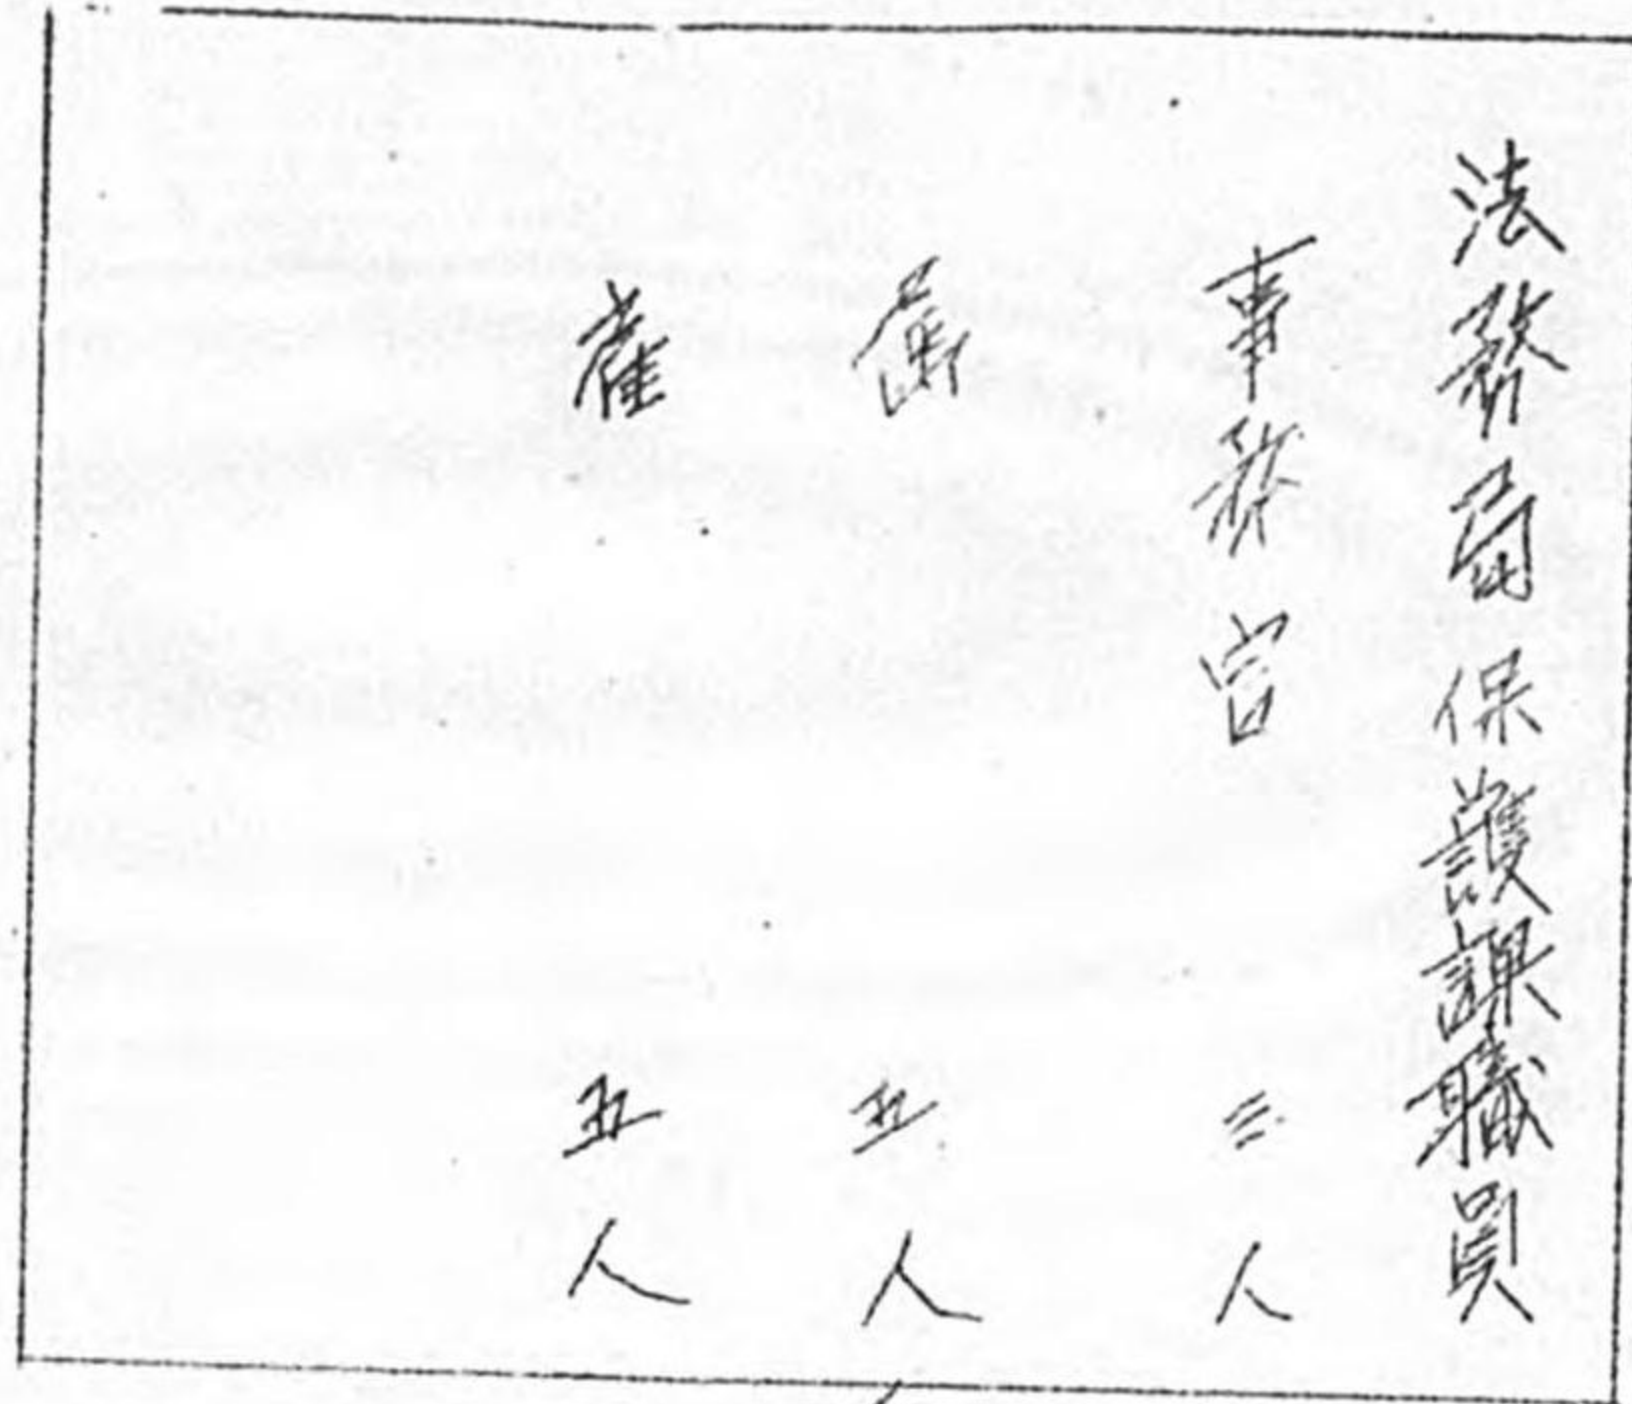 法務局保護課職員
事務官 三人
属 五人
雇 五人